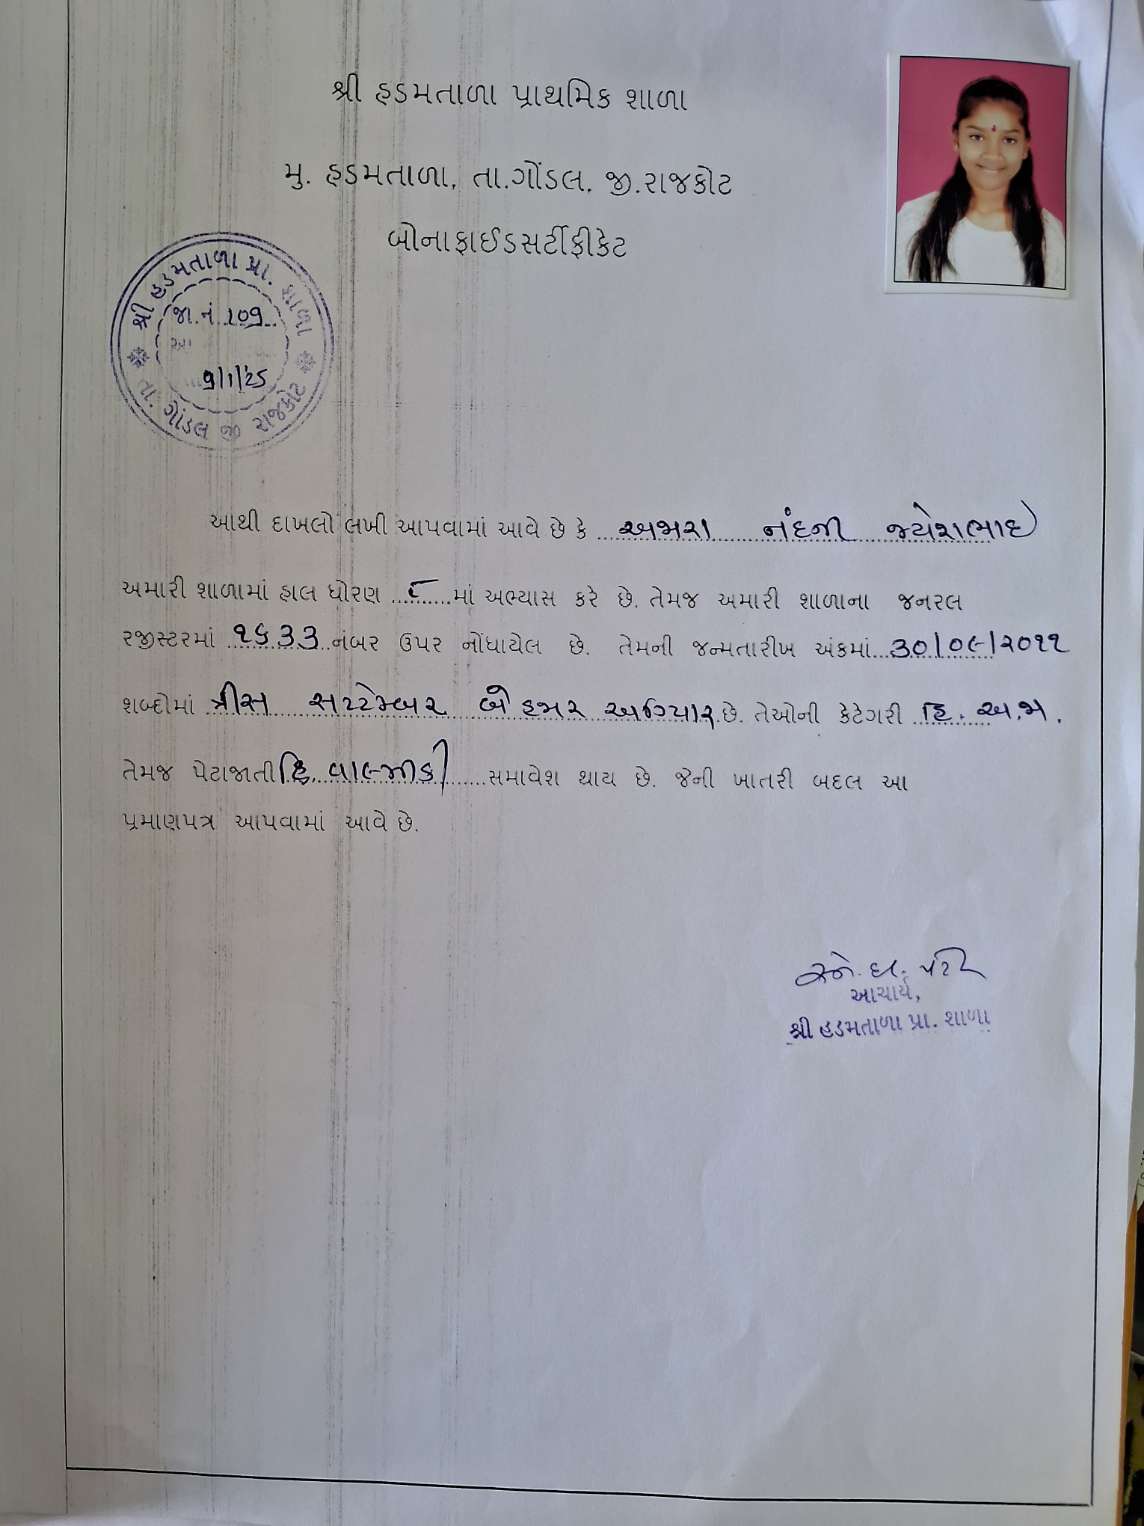 શ્રી હડમતાળા પ્રાથમિક શાળા
મુ. હડમતાળા, તા.ગોંડલ, જી.રાજકોટ
બોનાફાઈડસર્ટીફીકેટ
શ્રી હડમતાળા પ્રા. શાળા
જા.નં. 109
9/1/25
તા. ગોંડલ જી રાજકોટ
આથી દાખલો લખી આપવામાં આવે છે કે નંદની જયેશભાઇ
અમારી શાળામાં હાલ ધોરણ ૮ માં અભ્યાસ કરે છે. તેમજ અમારી શાળાના જનરલ
રજીસ્ટરમાં ૧૬૩૩ નંબર ઉપર નોંધાયેલ છે. તેમની જન્મતારીખ અંકમાં ૩૦/૦૯/૨૦૧૧
શબ્દોમાં ત્રીસ સપ્ટેમ્બર બે હજાર અગિયાર છે. તેઓની કેટેગરી હિ. અ.જા.
તેમજ પેટાજાતી હિ વાલ્મીકી સમાવેશ થાય છે. જેની ખાતરી બદલ આ
પ્રમાણપત્ર આપવામાં આવે છે.
આચાર્ય,
શ્રી હડમતાળા પ્રા. શાળા